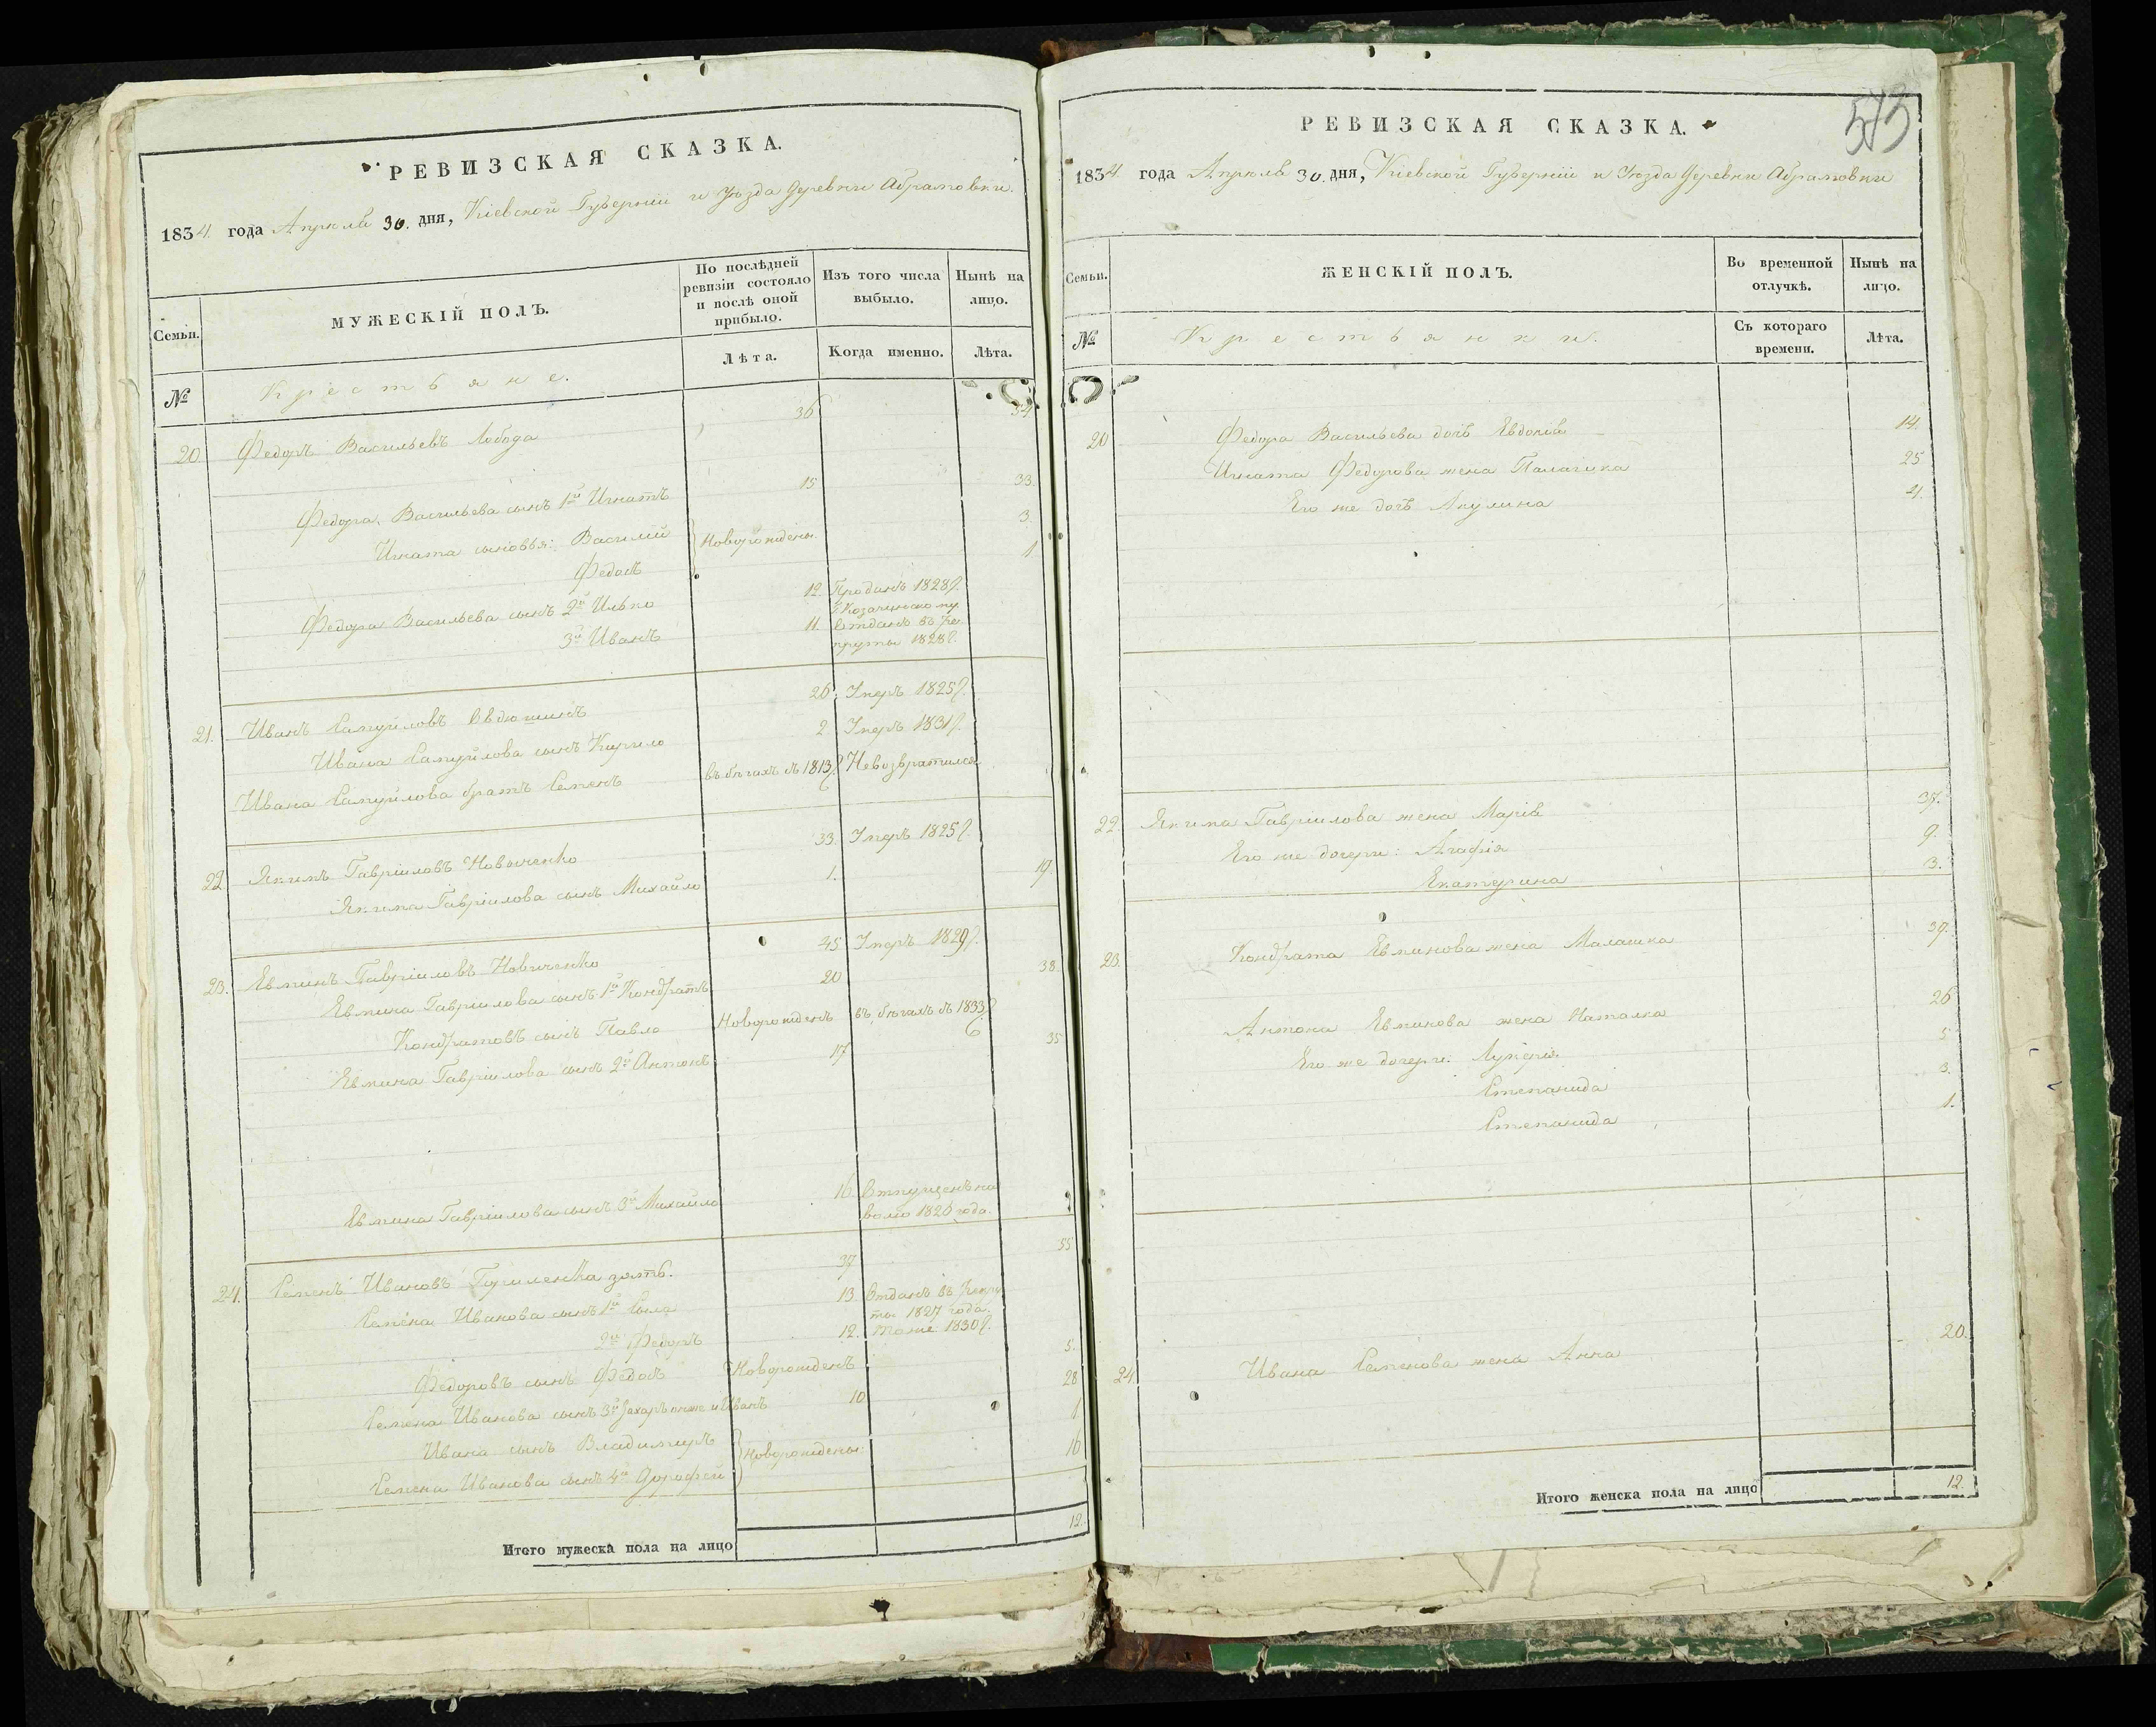 РЕВИЗСКАЯ СКАЗКА.
1834. года Апреля 30. дня, Кіевской Губерніи и Уѣзда деревни Абрамовки.
Семьи.
МУЖЕСКІЙ ПОЛЪ.
По послѣдней ревизіи состояло и послѣ оной прибыло.
Изъ того числа выбыло.
Нынѣ на лицо.
№
Крестьяне.
Лѣта.
Когда именно.
Лѣта.
20. Федоръ Васильевъ Лобода 36
Федора Васильева сынъ 1й Игнатъ 15 33.
Игната сыновья: Василій Новорождены 3.
Федосъ 1
Федора Васильева сынъ 2й Илько 12. Проданъ 1828г.
3й Иванъ 11. Отданъ въ Рекруты 1828г.
21. Иванъ Самуйловъ 26. Умеръ 1825г.
Ивана Самуйлова сынъ Кирило 2 Умеръ 1831г.
Ивана Самуйлова братъ Семенъ въ бѣгахъ съ 1813г. Невозвратился
22 Якимъ Гавріиловъ Новиченко 33. Умеръ 1825г.
Якима Гавріилова сынъ Михайло 1. 19.
23. Евминъ Гавріиловъ Новиченко 45 Умеръ 1829г.
Евмина Гавріилова сынъ 1й Кондратъ 20 38.
Кондратовъ сынъ Павло Новорожденъ въ бѣгахъ съ 1833г.
Евмина Гавріилова сынъ 2й Антонъ 17 35
Евмина Гавріилова сынъ 3й Михайло 16 Отпущенъ на
волю 1826 года.
24. Семенъ Ивановъ зять. 37 55
Семена Иванова сынъ 1й Сила 13. Отданъ въ Рекру
ты 1827 года.
2й Федоръ 12. тоже 1830г.
Федоровъ сынъ Федосъ Новорожденъ 5.
Семена Иванова сынъ 3й Захаръ онже и Иванъ 10 28
Ивана сынъ Владимиръ Новорождены 1
Семена Иванова сынъ 4й Дорофей 16
Итого мужеска пола на лицо 12.
573
РЕВИЗСКАЯ СКАЗКА.
1834 года Апреля 30. дня, Кіевской Губерніи и Уѣзда деревни Абрамовки
Семьи.
ЖЕНСКІЙ ПОЛЪ.
Во временной отлучкѣ.
Нынѣ на лицо.
№
Крестьянки.
Съ котораго времени.
Лѣта.
20 Федора Васильева дочь Евдокія 14.
Игната Федорова жена Палажка 25
Его же дочь Акулина
22. Якима Гавріилова жена Марія 37.
Его же дочери: Агафія 9.
Екатерина 3.
23. Кондрата Евминова жена Малашка 39.
Антона Евминова жена Наталка 26
Его же дочери: Лукерія 5
Степанида 3.
Степанида 1.
24. Ивана Семенова жена Анна 20.
Итого женска пола на лицо 12.